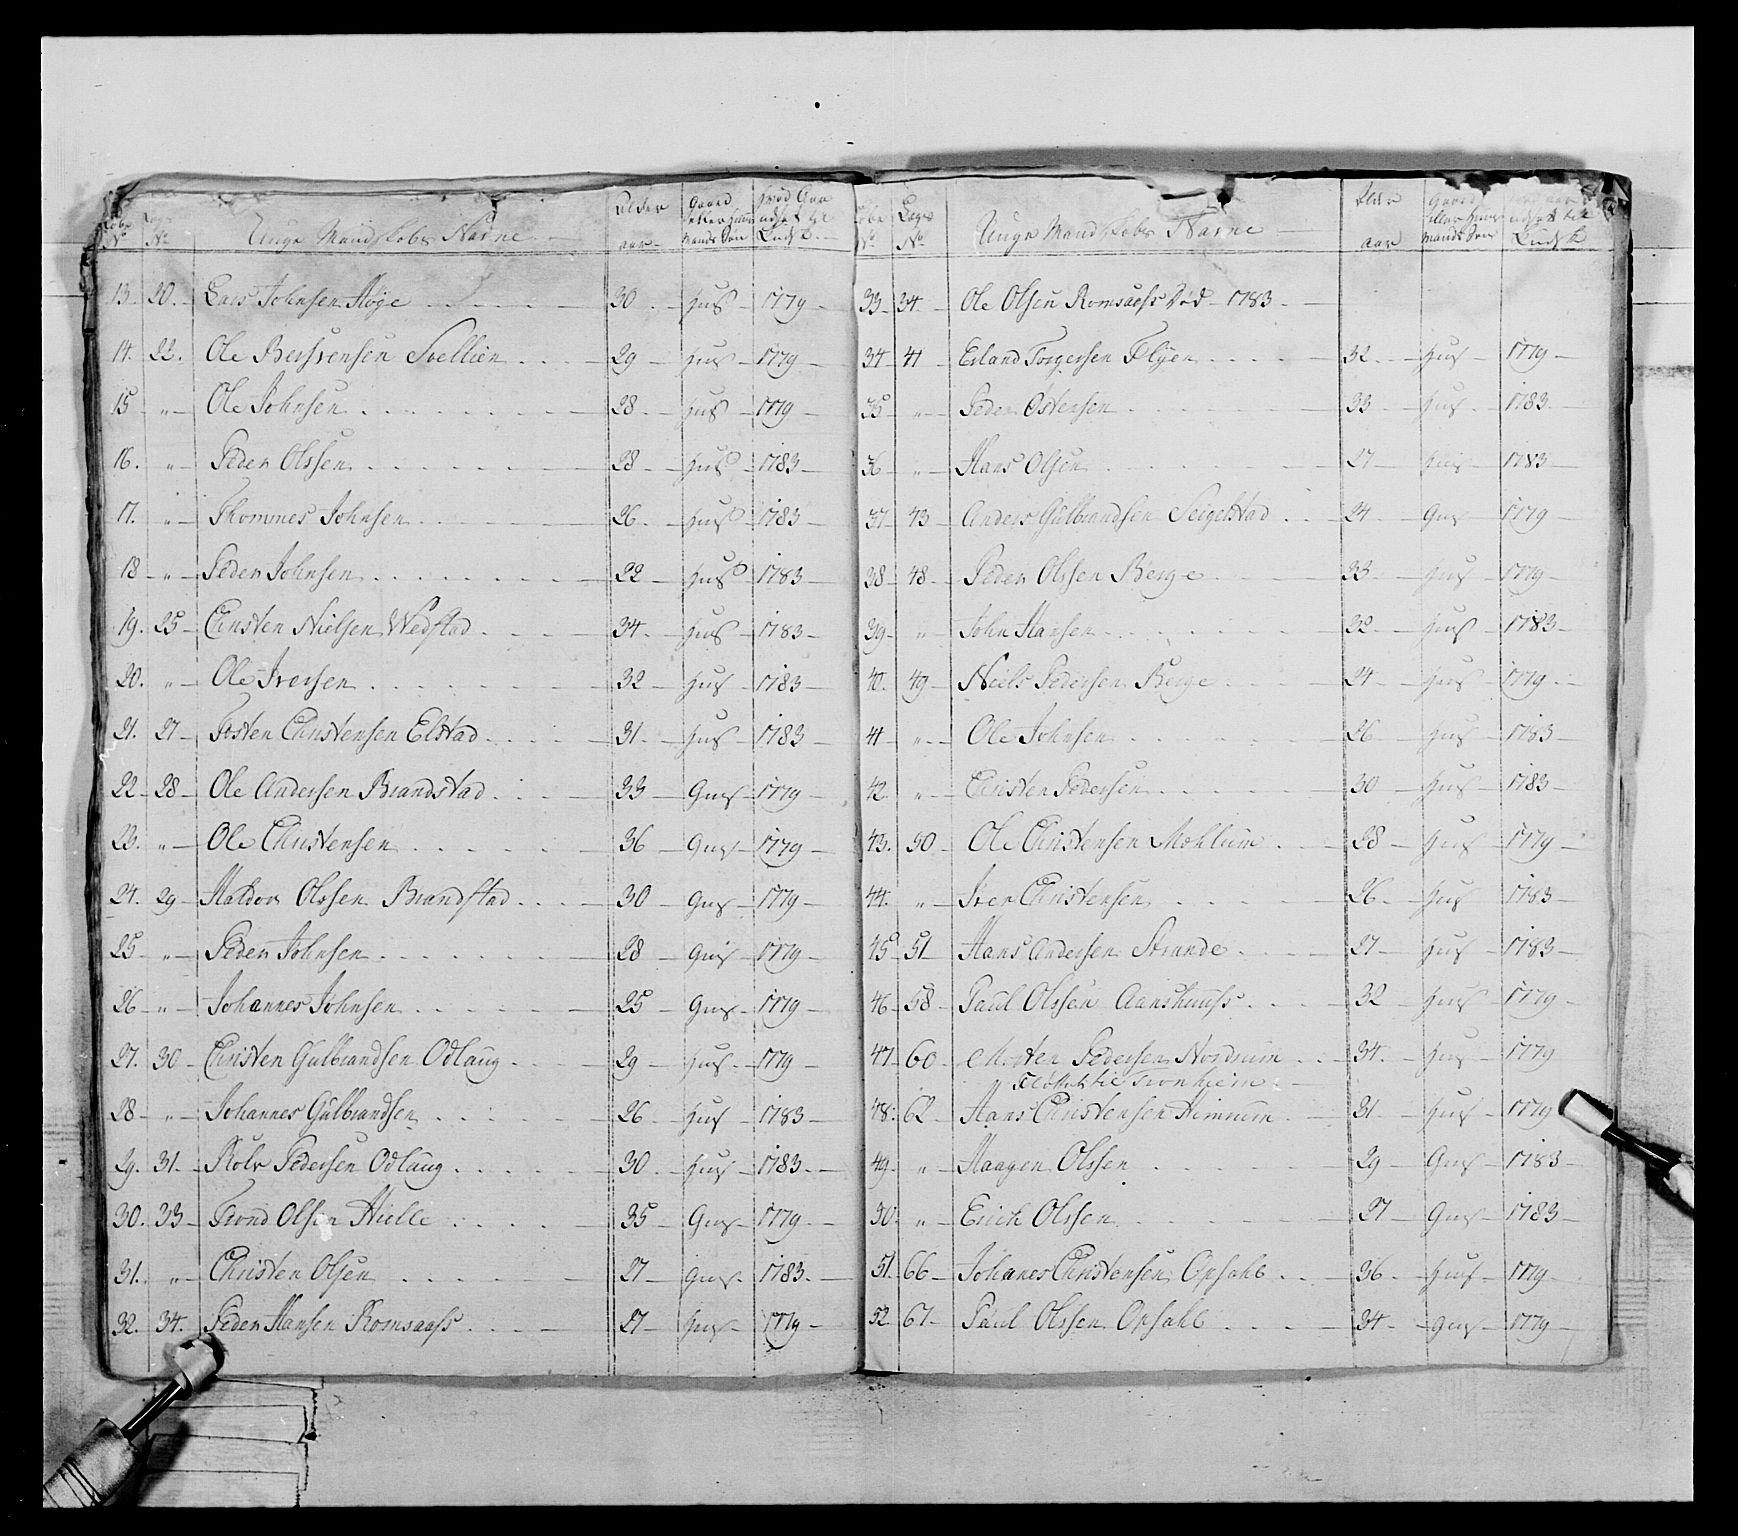 Løbe No
Legs No
Unge Mandskobs Nafne
Alder aar
Gaard eller Huus Mands Søn
Hvad Aar udsat til Landv.
13. 20. Lars Johnsen Høge 30 Hus 1779
14. 22. Ole Bersvensen Svellien 29 Hus 1779
15 " Ole Johnsen 28 Hus 1779
16. " Peder Olssen 28 Hus 1783
17. " Thommes Johnsen 26 Hus 1783
18 " Peder Johnsen 22 Hus 1783
19. 25 Christen Nielsen Wedstad 34 Hus 1783
20. " Ole Iversen 32 Hus 1783
21. 27 Tosten Christensen Elstad 31 Hus 1783
22 28 Ole Andersen Brandstad 33 Gus 1779
23. " Ole Christensen 36 Gus 1779
24. 29 Haldor Olssen Brandstad 30 Gus 1779
25 " Peder Johnsen 28 Gus 1779
26 " Johannes Johnsen 25 Gus 1779
27. 30 Christen Gulbrandsen Odlaug 29 Hus 1779
28 " Johannes Gulbrandsen 26 Hus 1783
29. 31 Rolv Pedersen Odlaug 30 Hus 1783
30. 33 Trond Olsen Hielle 35 Gus 1779
31. " Christen Olsen 27 Gus 1783
32. 34. Peder Hansen Romsaass 27 Hus 1779
Løbe No
Legs No
Unge Mandskobs Nafne
Alder aar
Gaard eller Huus Mands Søn
Hvad aar udsat til Landv.
33 34 Ole Olsen Romsaass Død 1783
34 41 Erland Torgersen Flyen 32 Hus 1779
35 " Peder Østensen 33 Hus 1783
36 " Hans Olsen 27 Hus 1783
37 43 Anders Gulbrandsen Seigelstad 24 Gus 1779
38 48 Peder Olssen Berge 33 Hus 1779
39 " John Hansen 32 Hus 1783
40. 49 Niels Pedersen Berge 24 Hus 1779
41 " Ole Johnsen 26 Hus 1783
42 " Christen Pedersen 30 Hus 1783
43. 50 Ole Christensen Mohlum 28 Hus 1779
44. " Iver Christensen 26 Hus 1783
45 51 Hans Andersen Strande 27 Hus 1783
46 58 Paul Olssen Aanshuuss 32 Hus 1779
47 60 Morten Pedersen Nordrum 34 Hus 1779
" Fløttet til Tronhiem
48. 62 Hans Christensen Himmen 31 Hus 1779
49. " Haagen Olssen 29 Gus 1783
50 " Erich Olssen 27 Gus 1783
51. 66 Johanes Christensen Opsahl 36 Hus 1779
52 67 Paul Olssen Opsahl 34 Gus 1779